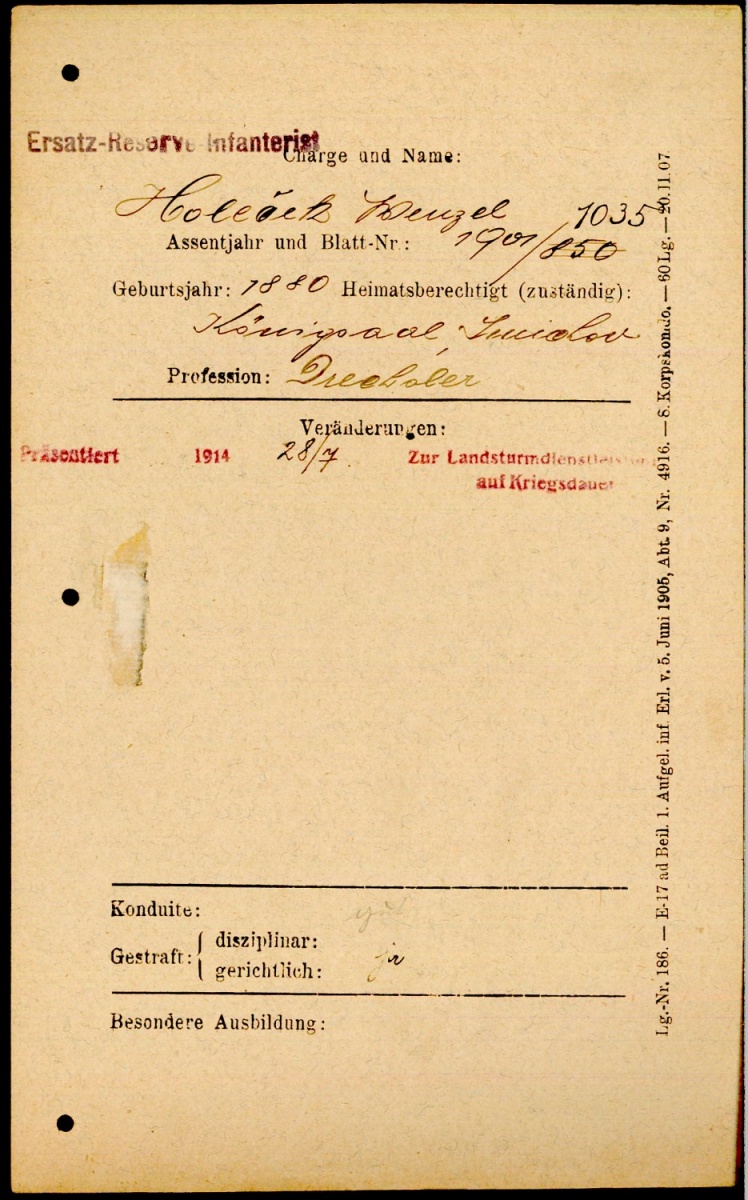 Ersatz-Reserve-Infanterist
Charge und Name:
Holeček Wenzel 1035
Assentjahr und Blatt-Nr.: 1901/850
Geburtsjahr: 1880 Heimatsberechtigt (zuständig):
Königsaal, Smichov
Profession: Drechsler
Veränderungen:
Präsentiert 1914 28/7. Zur Landsturmdienstleistung
auf Kriegsdauer
Konduite: gut
Gestraft: { disziplinar:
gerichtlich: ja
Besondere Ausbildung:
Lg.-Nr. 186. — E-17 ad Beil. 1. Aufgel. inf. Erl. v. 5. Juni 1905, Abt. 9, Nr. 4916. — 8. Korpskomdo. — 60 Lg. — 20.11.07